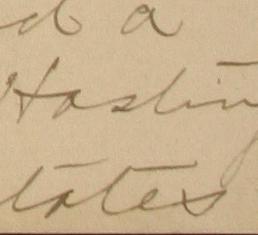 d a
Hastin
tates